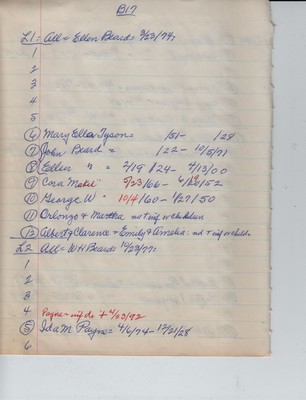 B17
L1 = All = Ellen Beard = 3/23/74;
1
2
3
4
5
6 Mary Ella Tyson = /51 - /28
7 John Beard = /22 - 10/5/71
8 Ellen " = 2/19/24 - 4/13/00
9 Cora Mabel " 9/23/66 - 52
10 George W " 10/4/60 - 1/27/50
11 Orlongo & Martha no + wif or children
12 Albert & Clarence & Emily & Amelia: no + wif or childn
L2 All = W H Beard = 10/23/77;
1
2
3
4. Payne = inf do + 4/20/92
5 Ida M Payne = 4/6/74 - 12/21/28
6